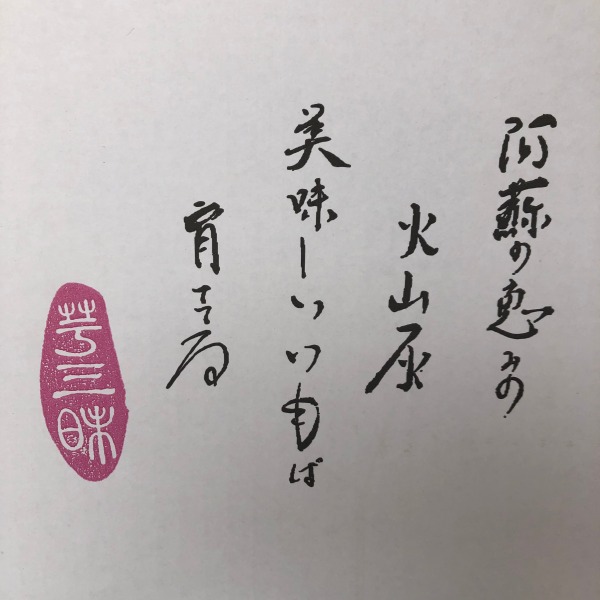 阿蘇の恵みの
火山灰
美味しいいもば
芋三昧